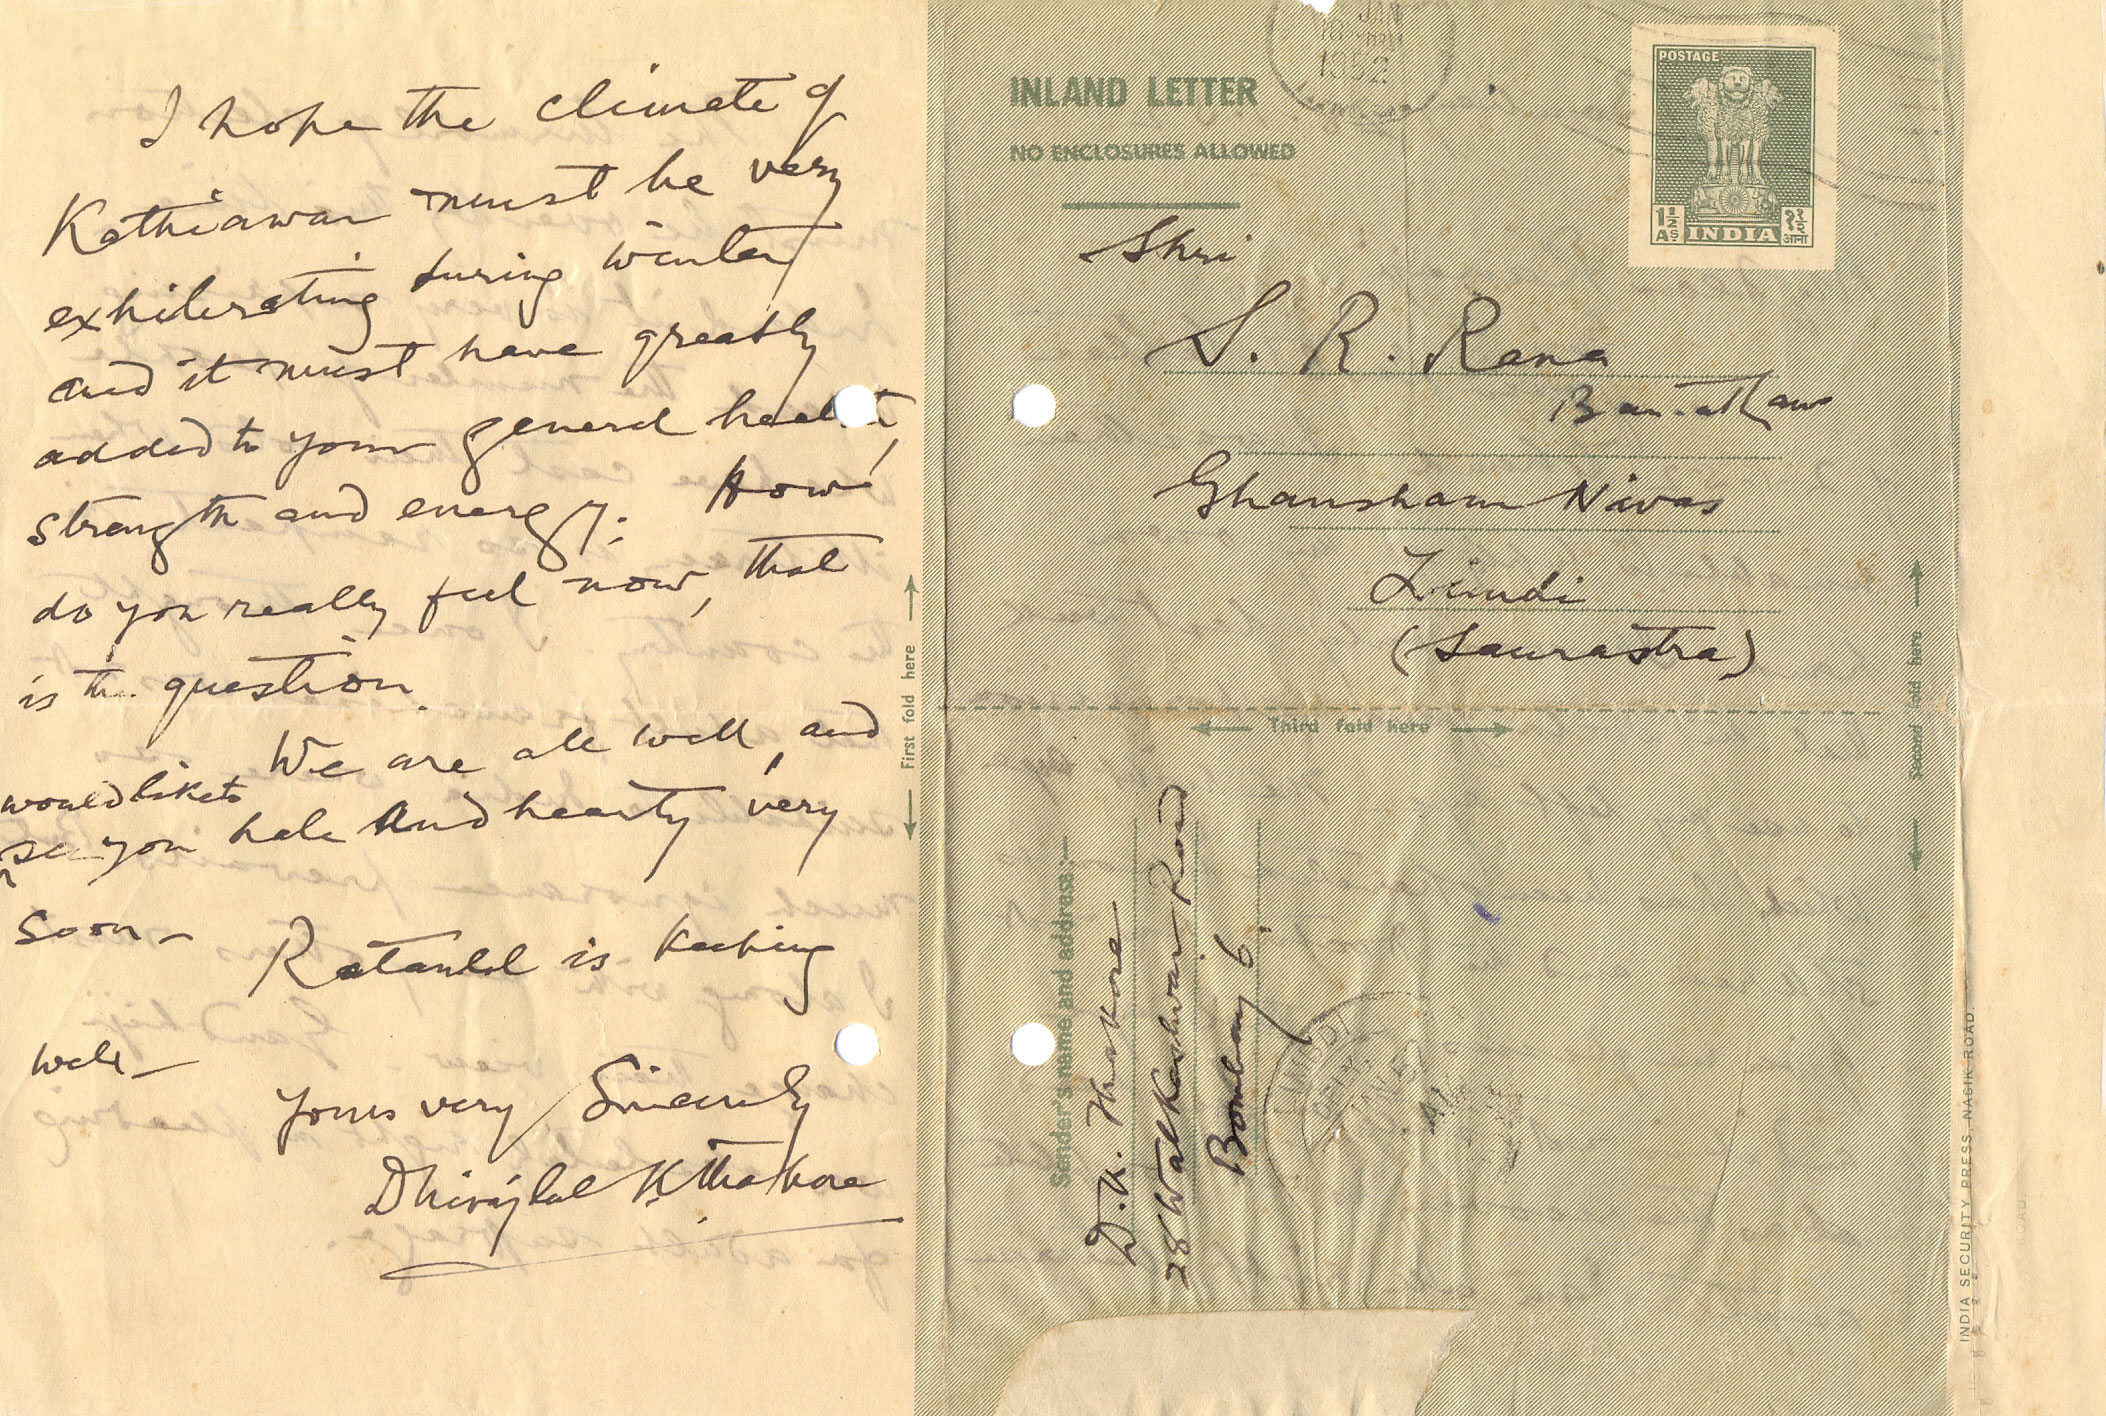 I hope the climate of
Kathiawar must be very
exhilerating during winter
and it must have greatly
added to your general health,
strength and energy. How
do you really feel now, that
is the question.
We are all well, and
would like to
see you hale and hearty very
soon -
Ratanlal is keeping
well -
Yours very Sincerely
Dhirajlal K. Thakore
INLAND LETTER
NO ENCLOSURES ALLOWED
JAN
1952
POSTAGE
1½ As
INDIA
१½ आना
Shri
S. R. Rana
Bar-at-Law
Ghansham Nivas
Limdi
(Saurastra)
First fold here
Third fold here
Second fold here
Sender's name and address:-
D. K. Thakore
28 Walkeshwar Road
Bombay 6.
INDIA SECURITY PRESS, NASIK ROAD